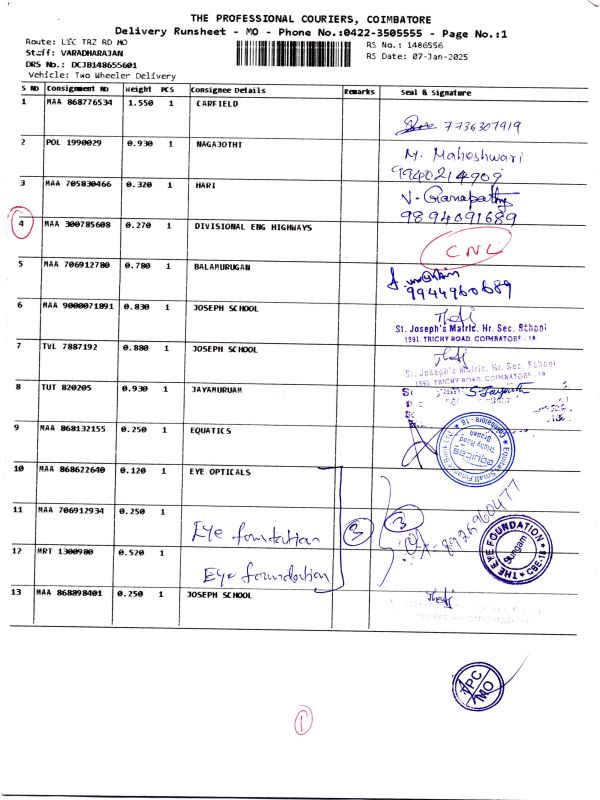 THE PROFESSIONAL COURIERS, COIMBATORE
Delivery Runsheet - MO - Phone No.:0422-3505555 - Page No.:1
Route: LIC TRZ RD MO
RS No.: 1486556
Staff: VARADHARAJAN
RS Date: 07-Jan-2025
DRS No.: DCJB148655601
Vehicle: Two Wheeler Delivery
S NO Consignment No Weight PCS Consignee Details Remarks Seal & Signature
1 MAA 868776534 1.550 1 CARFIELD
7736307919
2 POL 1990029 0.930 1 NAGAJOTHI
M. Maheshwari
9940214909
3 MAA 705830466 0.320 1 HARI
V. Ganapathy
9894091689
4 MAA 300785608 0.270 1 DIVISIONAL ENG HIGHWAYS
CNL
5 MAA 706912780 0.780 1 BALAMURUGAN
9944960689
6 MAA 9000071891 0.830 1 JOSEPH SCHOOL
St. Joseph's Matric. Hr. Sec. School
1591, TRICHY ROAD, COIMBATORE - 18
7 TVL 7887192 0.880 1 JOSEPH SCHOOL
St. Joseph's Matric. Hr. Sec. School
1591, TRICHY ROAD, COIMBATORE - 18
8 TUT 820205 0.930 1 JAYAMURUAM
9 MAA 868132155 0.250 1 EQUATICS
Equitas Small Finance Bank
Coimbatore - 18
equitas
Trichy Road
Branch
10 MAA 868622640 0.120 1 EYE OPTICALS
11 MAA 706912934 0.250 1
Eye foundation
3
3
THE EYE FOUNDATION
Sungam
CBE-18
12 MRT 1300980 0.520 1
Eye foundation
13 MAA 868898401 0.250 1 JOSEPH SCHOOL
TPC
MO
1